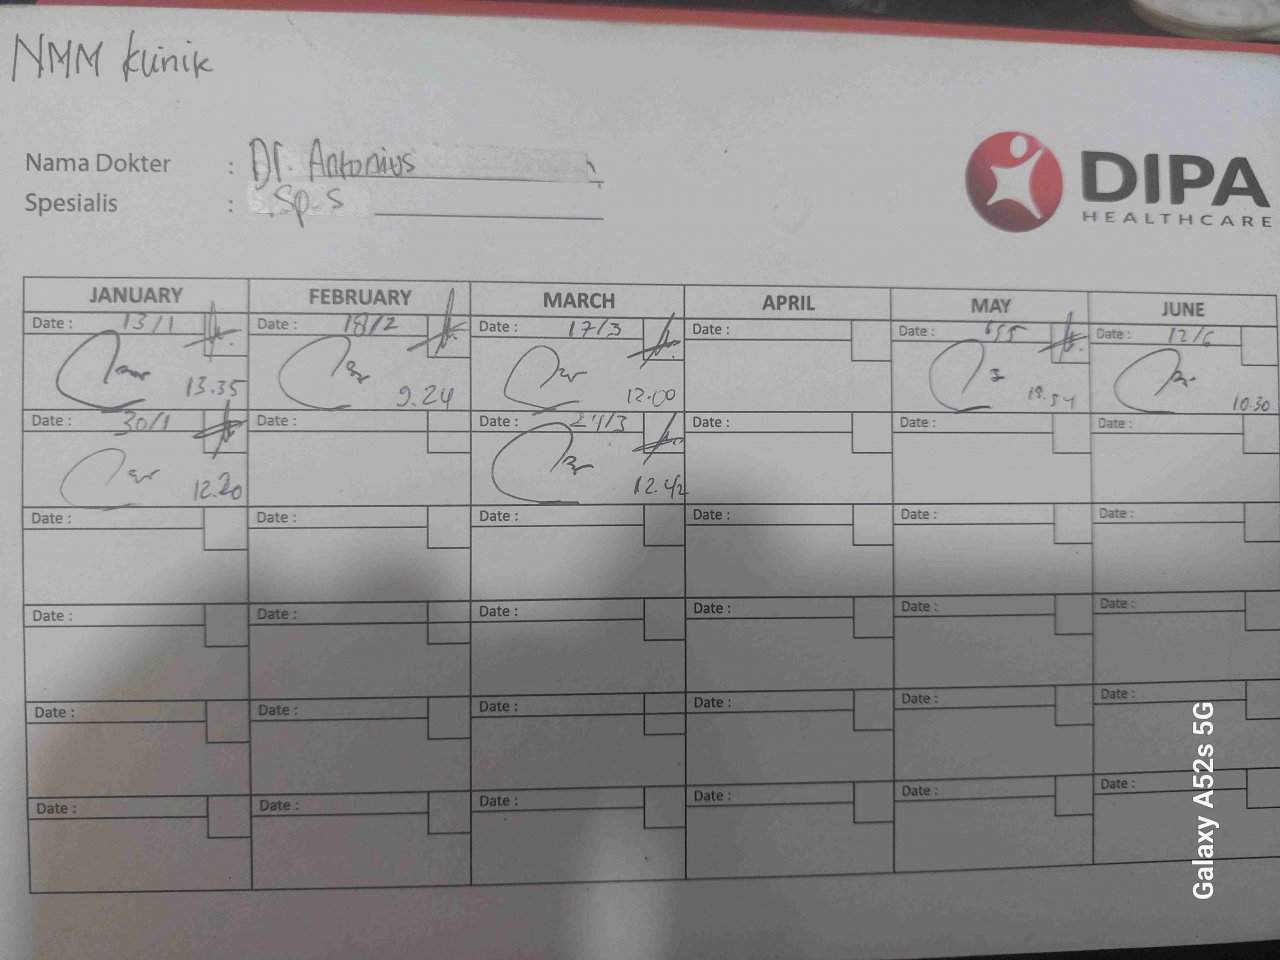 NMM Klinik
Nama Dokter : Dr. Antonius
Spesialis : Sp. S
DIPA
HEALTHCARE
JANUARY FEBRUARY MARCH APRIL MAY JUNE
Date : 13/1 Date : 18/2 Date : 17/3 Date : Date : Date : 12/6
13.35 9.24 12.00 10.30
Date : 30/1 Date : Date : 24/3 Date : Date : Date :
12.20 12.42
Date : Date : Date : Date : Date : Date :
Date : Date : Date : Date : Date : Date :
Date : Date : Date : Date : Date : Date :
Date : Date : Date : Date : Date : Date :
Galaxy A52s 5G